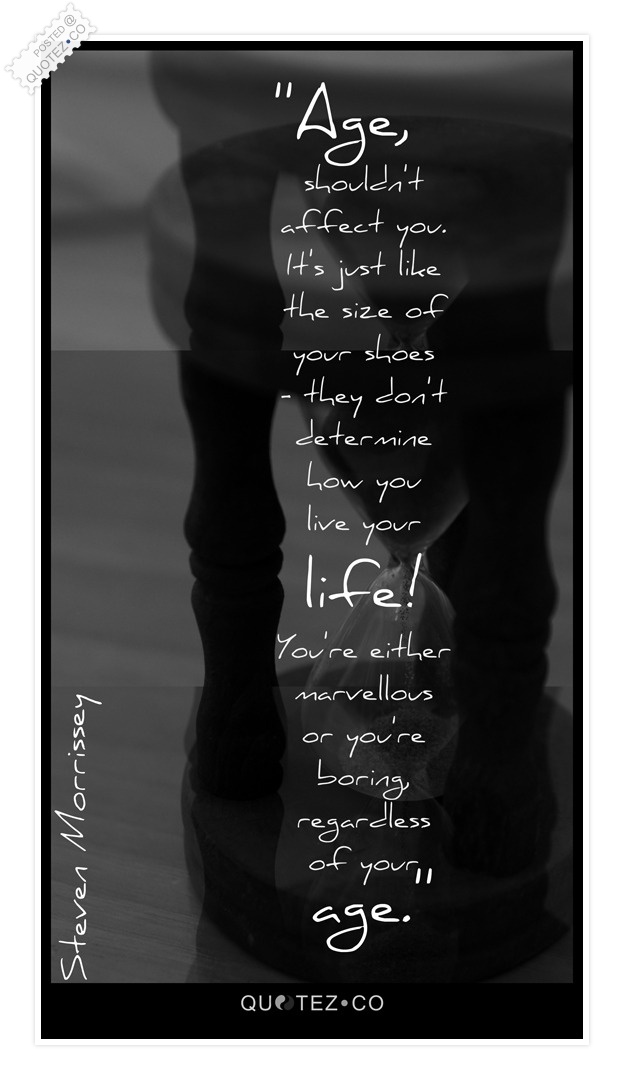 POSTED @
QUOTEZ.CO
"Age,
shouldn't
affect you.
It's just like
the size of
your shoes
- they don't
determine
how you
live your
life!
You're either
marvellous
or you're
boring,
regardless
of your
age."
Steven Morrissey
QUOTEZ•CO